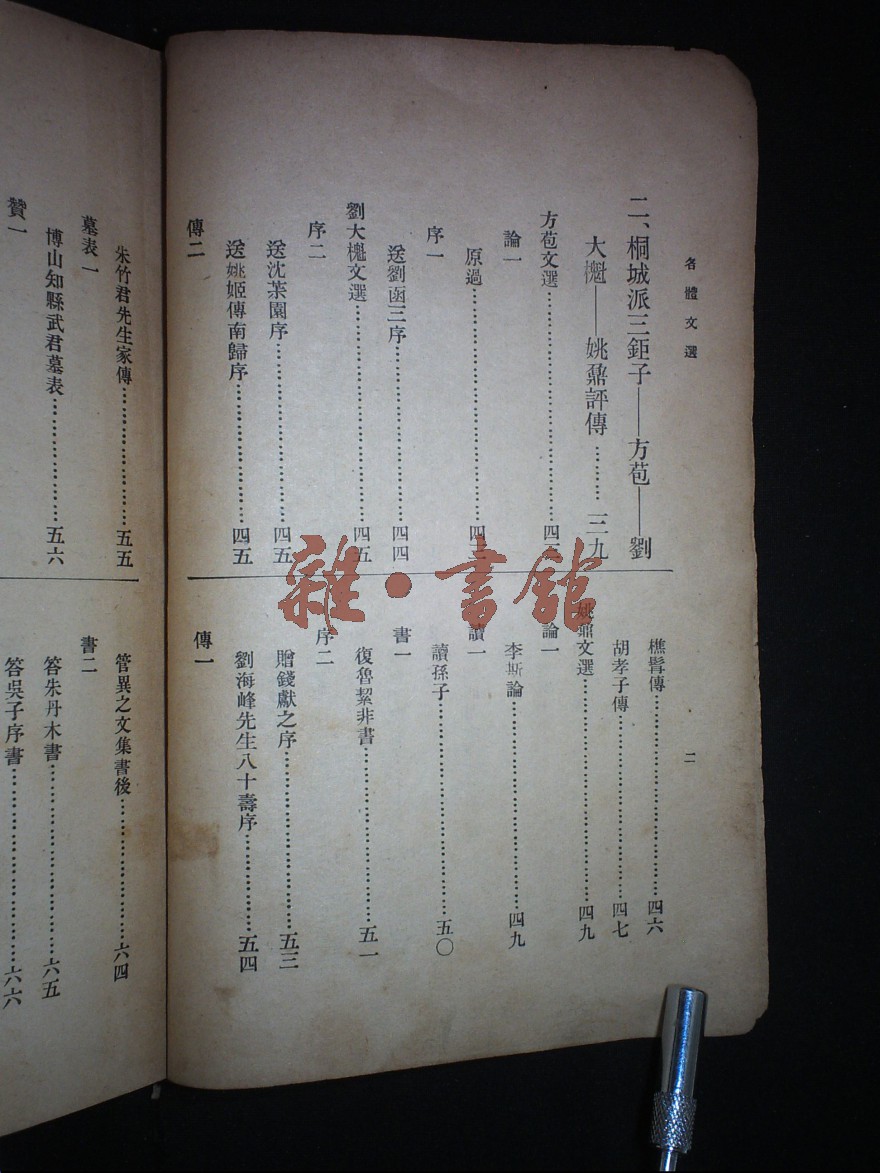 各體文選
二
二、桐城派三鉅子——方苞——劉
大櫆——姚鼐評傳………三九
方苞文選………四
論一
原過………四三
序一
送劉函三序………四四
劉大櫆文選………四五
序二
送沈茮園序………四五
送姚姬傳南歸序………四五
傳二
樵髯傳………四六
胡孝子傳………四七
姚鼐文選………四九
論一
李斯論………四九
讀一
讀孫子………五〇
書一
復魯絜非書………五一
序二
贈錢獻之序………五三
劉海峰先生八十壽序………五四
傳一
朱竹君先生家傳………五五
墓表一
博山知縣武君墓表………五六
贊一
管異之文集書後………六四
書二
答朱丹木書………六五
答吳子序書………六六
雜·書館